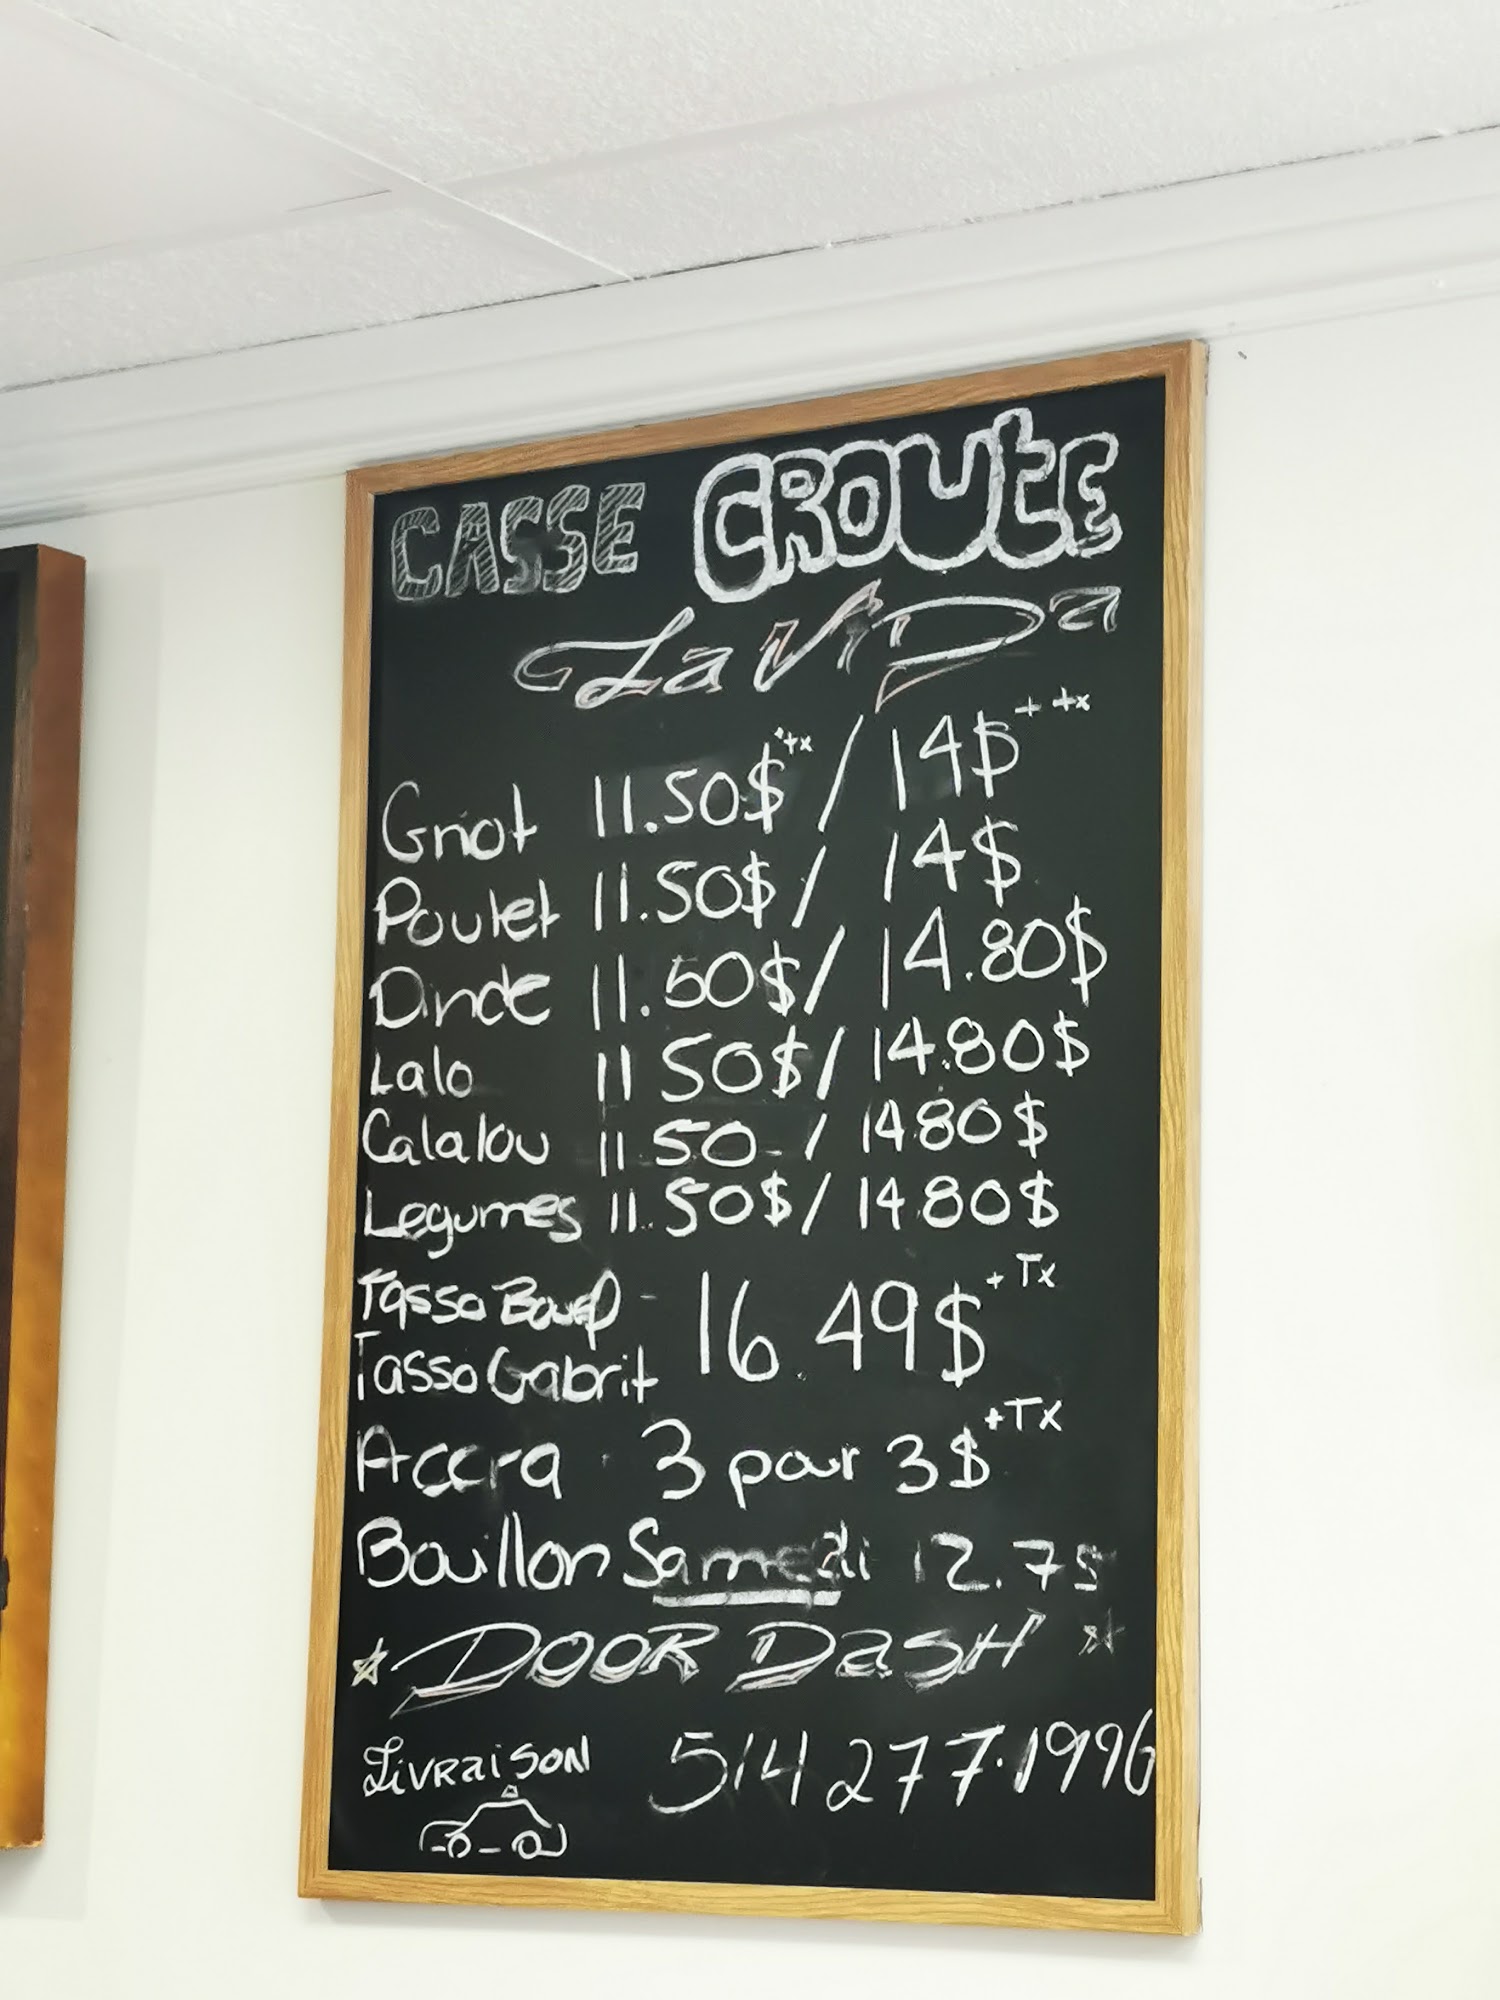 CASSE CROUTE
La ViDa
Griot 11.50$ +tx / 14$ + tx
Poulet 11.50$ / 14$
Dinde 11.50$ / 14.80$
Lalo 11 50$ / 14.80$
Calalou 11 50 - / 14.80$
Legumes 11.50$ / 14.80$
Tasso Boeuf - 16.49$ + Tx
Tasso Cabrit
Accra 3 pour 3$ +Tx
Bouillon Samedi 12.75
DOOR DASH
LiVRaiSON 514 277.1996